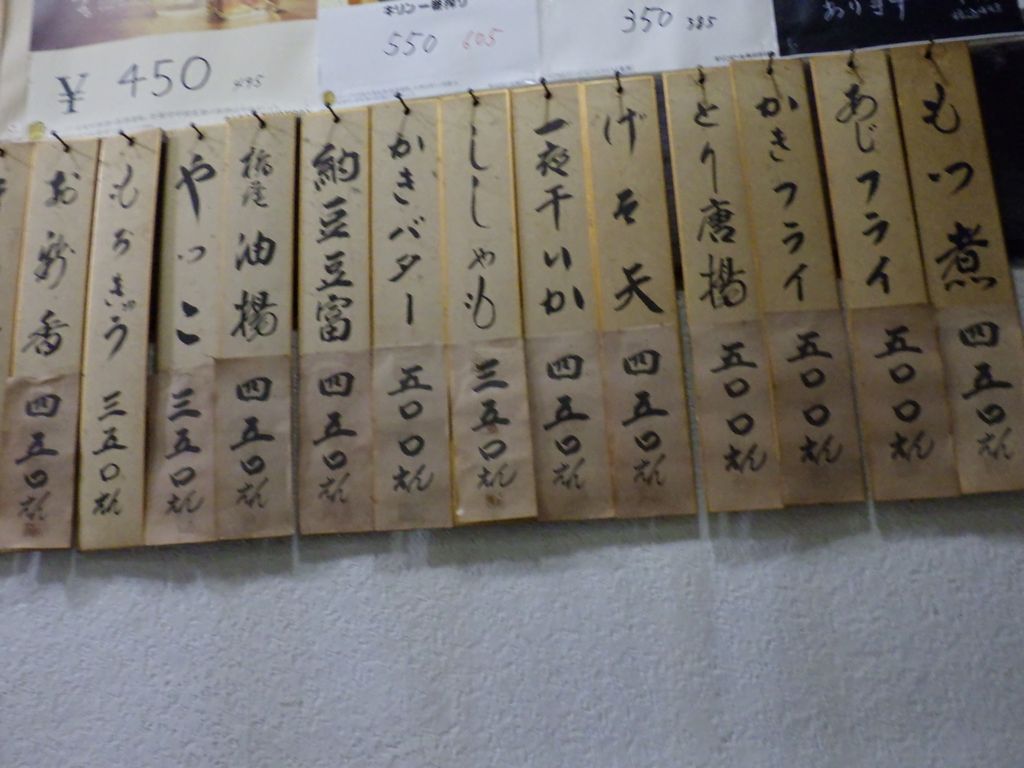 ¥450 495
キリン一番搾り
550 605
350 385
あります
もつ煮 四五〇えん
あじフライ 五〇〇えん
かきフライ 五〇〇えん
とり唐揚 五〇〇えん
げそ天 四五〇えん
一夜干いか 四五〇えん
ししゃも 三五〇えん
かきバター 五〇〇えん
納豆豆富 四五〇えん
油揚 四五〇えん
やっこ 三五〇えん
もろきゅう 三五〇えん
お新香 四五〇えん